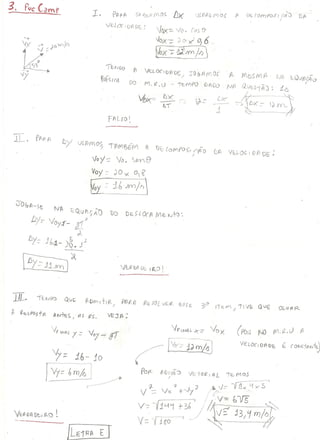 3. Puc Camp
I. PARA ACHARMOS Δx USAREMOS A DECOMPOSIÇÃO DA
VELOCIDADE:
Vox = Vo. cosθ
Vox = 20 x 0,6
Vox = 12 m/s
TENDO A VELOCIDADE, JOGAMOS A MESMA NA EQUAÇÃO
BÁSICA DO M.R.U - TEMPO DADO NA QUESTÃO: 1s
Vox = Δx/ΔT ⇒ 12 = Δx/1 ⇒ Δx = 12m
FALSO!
II. PARA Dy USAMOS TAMBÉM A DECOMPOSIÇÃO DA VELOCIDADE:
Voy = Vo. senθ
Voy = 20 x 0,8
Voy = 16 m/s
JOGA-SE NA EQUAÇÃO DO DESLOCAMENTO:
Dy = Voyt - gT²/2
Dy = 16.1 - 10.1²/2
Dy = 11 m
VERDADEIRO!
III. TENHO QUE ADMITIR, PARA RESOLVER ESSE 3º ITEM, TIVE QUE OLHAR
A RESPOSTA ANTES, VEJA:
Vfinal y = Voy - gT
Vfinal x = Vox (POIS NO M.R.U A
Vy = 16 - 10
Vx = 12 m/s
VELOCIDADE É CONSTANTE)
Vy = 6 m/s
POR ADIÇÃO VETORIAL TEMOS
V² = Vx² + Vy²
V = √144 + 36
V = √180
V = 6√5
V = 13,4 m/s
VERDADEIRO!
LETRA E